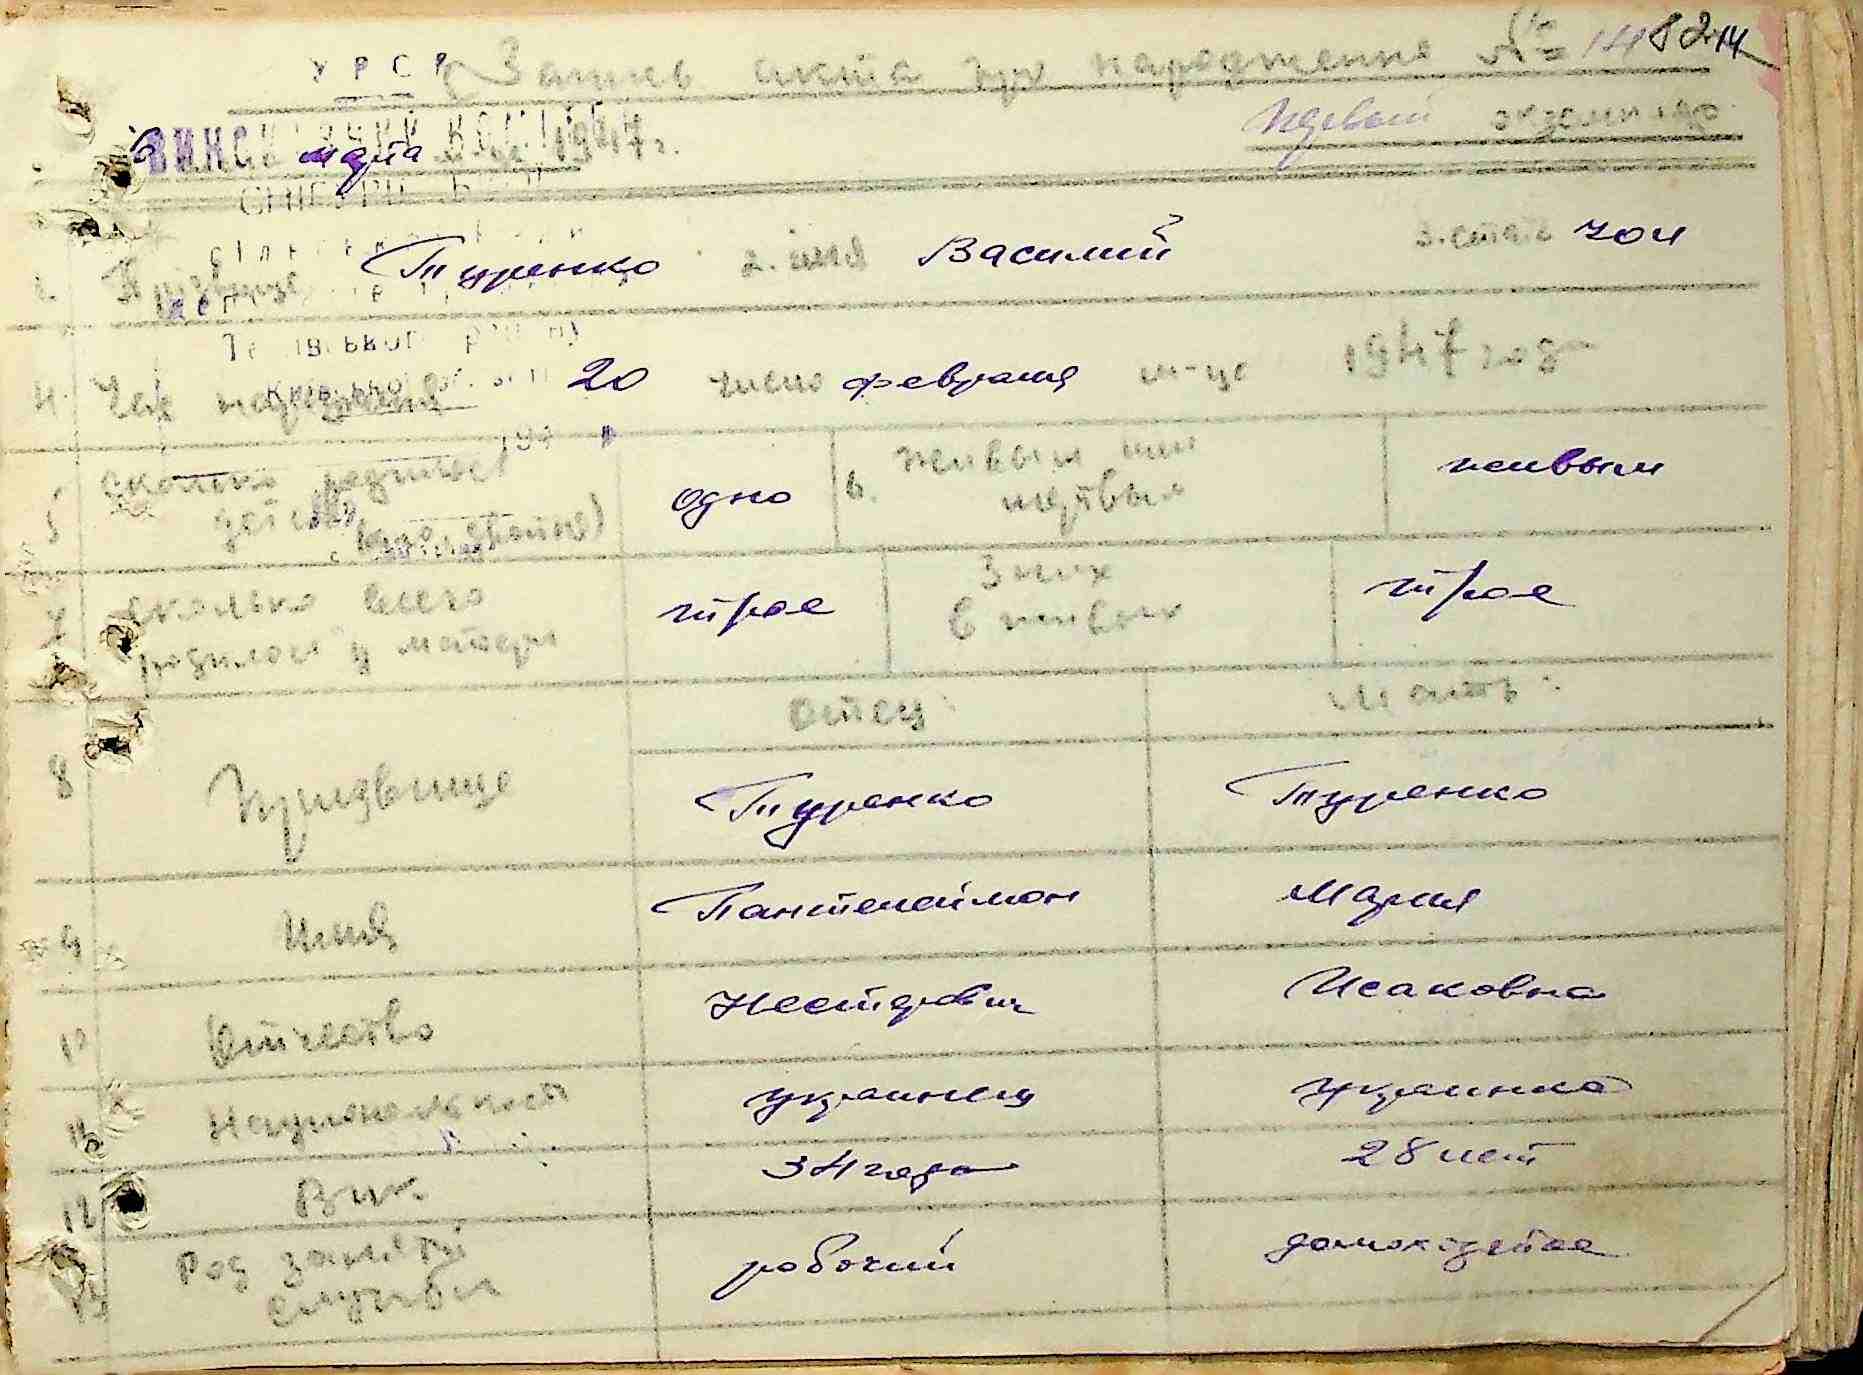 УРСР
Запись акта про народження №
Первый экземпляр
6 марта м-ца 1947 г.
Прізвище Туренко 2. имя Василий 3. стать чол
4. Час народження 20 число февраля м-це 1947 года
5 сколько родилось детей одно 6. живым или мертвым живым
7 сколько всего родилось у матери трое З них в живых трое
отец: мать:
8 Призвище Туренко Туренко
9 Имя Пантелеймон Мария
10 Отчество Нестерович Исаковна
11 Национальность украинец украинка
12 Вик 34 года 28 лет
13 Род занятий службы рабочий домохозяйка